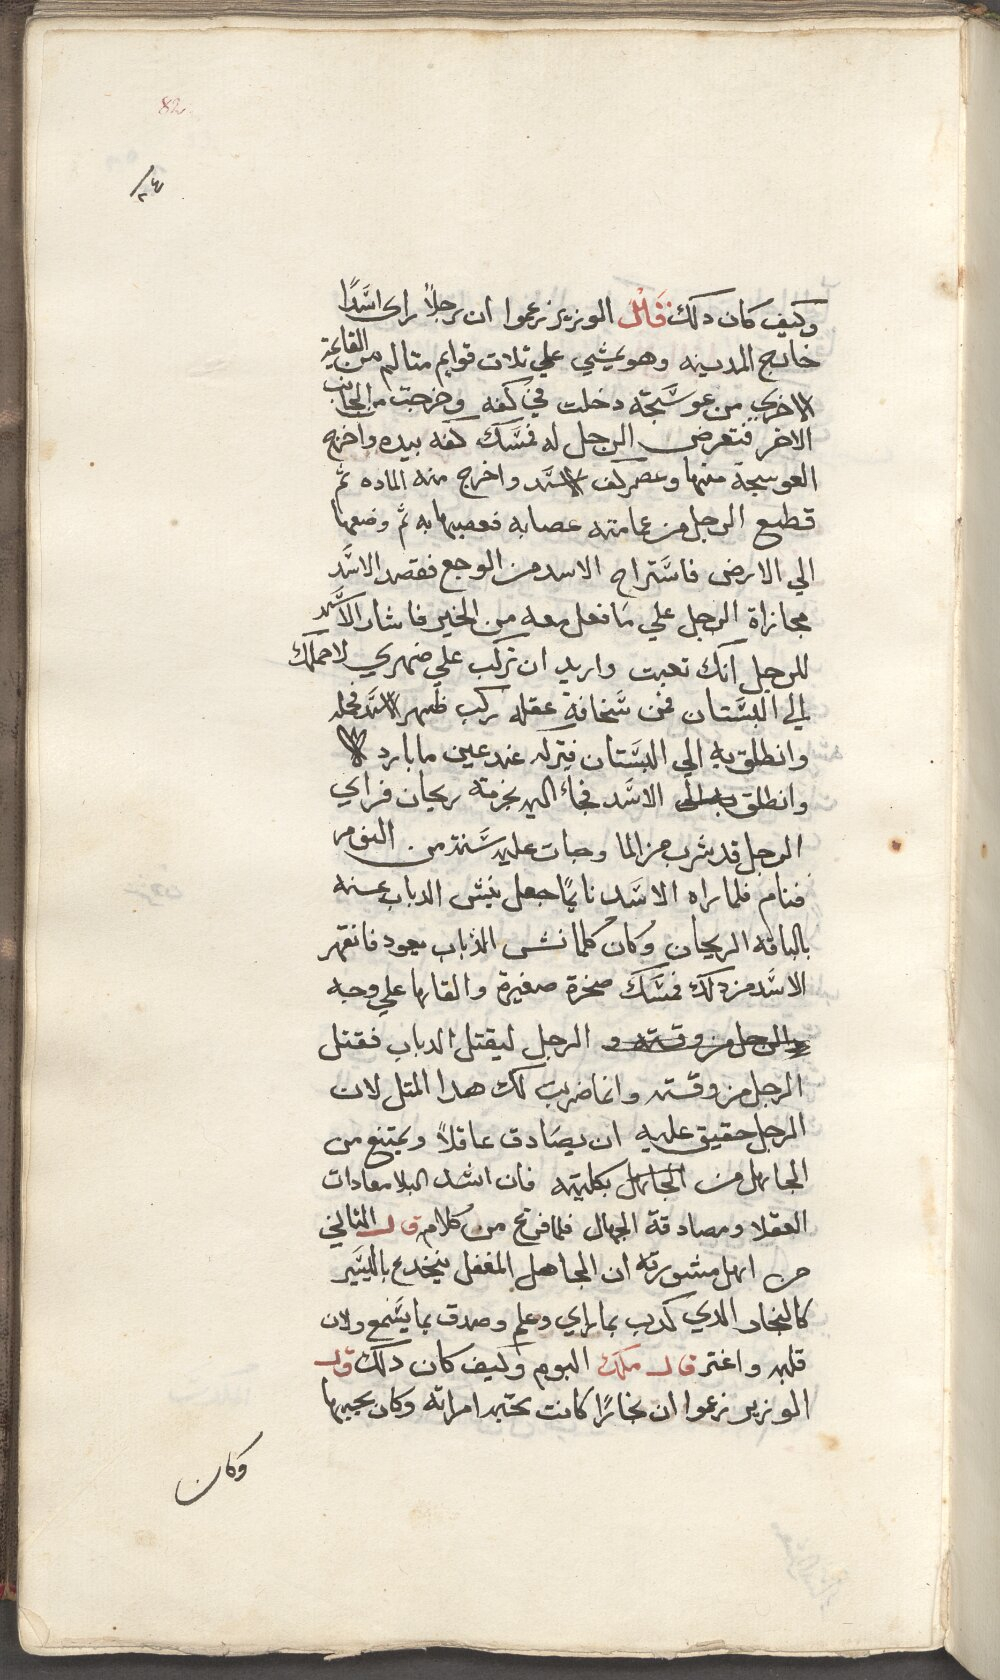 82
وكيف كان دلك فقال الوزير زعموا ان رجلاً راى اسَدًا
خارج المدينه وهو يمشي علي تلات قوايم متالم من القايمة
الاخري من عوسَجة دخلت في كفه وخرجت من الجانب
الاخر فتعرض الرجل له فمسَك كفه بيده واخرج
العوسجة منها وعصر كف الاسَد واخرج منه الماده ثم
قطع الرجل من عمامته عصابه فعصبها به ثم وضعها
الي الارض فاسَتراح الاسد من الوجع فقصد الاسَد
مجازاة الرجل علي مَا فعل معه من الخير فاشار الاسَد
للرجل انك تعبت واريد ان تركب علي ضهري لاحملك
الي البسَتان فمن سَخافة عقله ركب ظهر الاسَد فحمله
وانطلق به الي البسَتان فنزله عند عين ما بارد
وانطلق الاسَد فجاء اليه بخزمة ريحان فراي
الرجل قد شرب من الما وجات عليه سَنة من النوم
فنام فلما راه الاسَد نايمًا جعل ينش الدباب عنه
بالباقه الريحان وكان كلما نش الذباب يعود فانقهر
الاسَد من دلك فمسَك صخرة صغيرة والقاها علي وجه
الرجل من وقته و الرجل ليقتل الدباب فقتل
الرجل من وقته وانما ضربت لك هدا المتل لان
الرجل حقيق عليه ان يصَادق عاقلاً ويمتنع من
الجاهل من الجاهل بكليته فان اشد البلا معادات
العقلا ومصادقة الجهال فلما فرغ من كلامه قال التالي
من اهل مشورته ان الجاهل المغفل ينخدع باليسَير
كالنجار الدي كدب بما راي وعلم وصدق بما يسَمع ولان
قلبه واغتر قال ملك البوم وكيف كان دلك قال
الوزير زعموا ان نجارًا كانت تحته امراته وكان يحبها
وكان